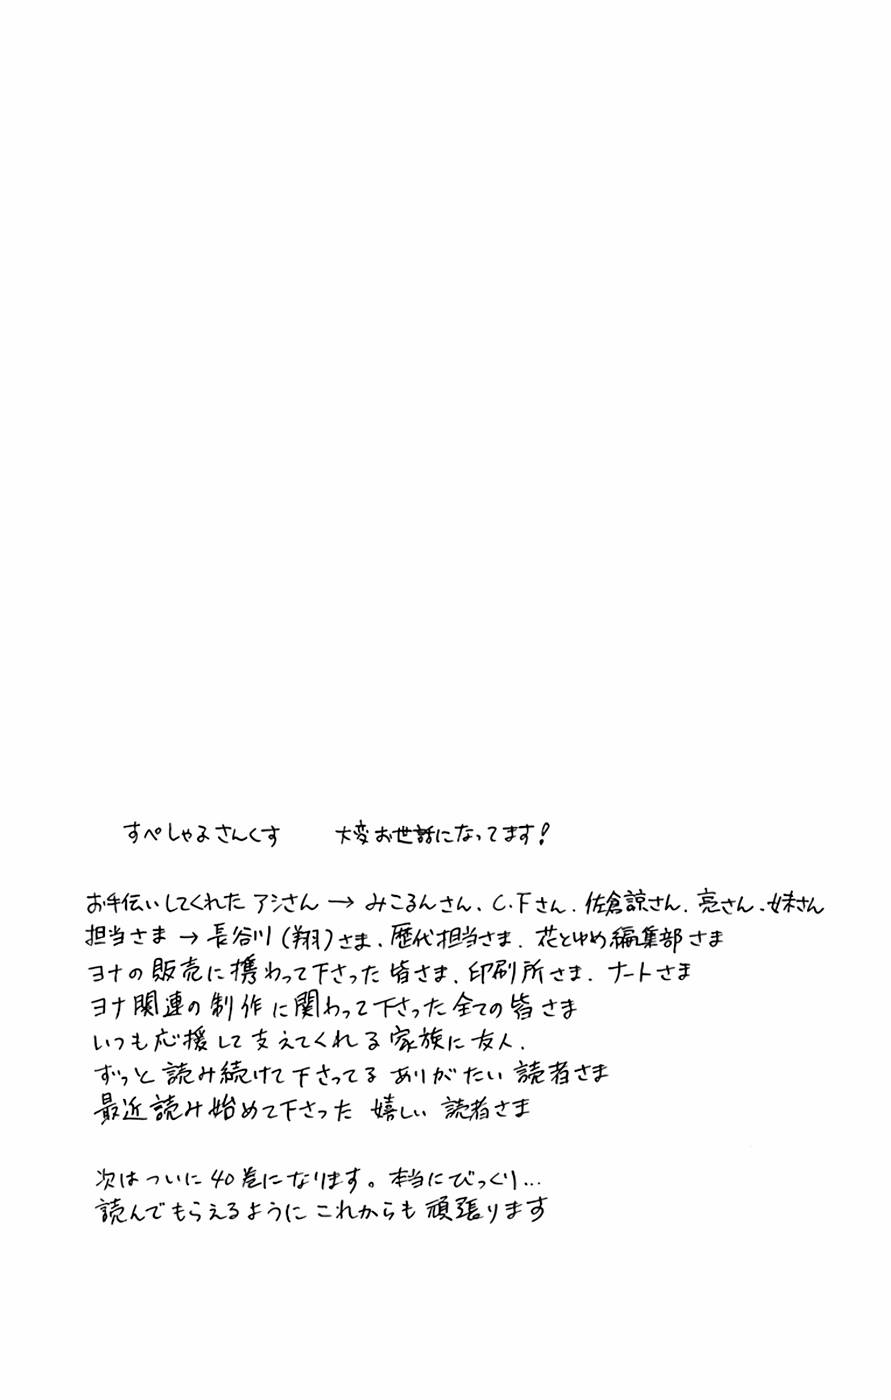 すぺしゃるさんくす　　大変お世話になってます!
お手伝いしてくれた アシさん → みこるんさん、C.Fさん、佐倉諒さん、亮さん、妹さん
担当さま → 長谷川(翔)さま、歴代担当さま、花とゆめ編集部さま
ヨナの 販売に携わって下さった 皆さま、印刷所さま、ナートさま
ヨナ関連の制作に関わって下さった全ての皆さま
いつも応援して支えてくれる 家族に友人、
ずっと読み続けて下さってる ありがたい 読者さま
最近読み始めて下さった 嬉しい 読者さま
次はついに40巻になります。本当にびっくり...
読んでもらえるように これからも 頑張ります